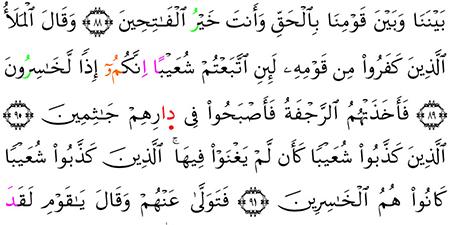 بَيْنَنَا وَبَيْنَ قَوْمِنَا بِٱلْحَقِّ وَأَنتَ خَيْرُ ٱلْفَٰتِحِينَ ﴿٨٨﴾ وَقَالَ ٱلْمَلَأُ
ٱلَّذِينَ كَفَرُوا۟ مِن قَوْمِهِۦ لَئِنِ ٱتَّبَعْتُمْ شُعَيْبًا إِنَّكُمُۥٓ إِذًا لَّخَٰسِرُونَ
﴿٨٩﴾ فَأَخَذَتْهُمُ ٱلرَّجْفَةُ فَأَصْبَحُوا۟ فِى دِارِهِمْ جَٰثِمِينَ ﴿٩٠﴾
ٱلَّذِينَ كَذَّبُوا۟ شُعَيْبًا كَأَن لَّمْ يَغْنَوْا۟ فِيهَا ۚ ٱلَّذِينَ كَذَّبُوا۟ شُعَيْبًا
كَانُوا۟ هُمُ ٱلْخَٰسِرِينَ ﴿٩١﴾ فَتَوَلَّىٰ عَنْهُمْ وَقَالَ يَٰقَوْمِ لَقَدَ